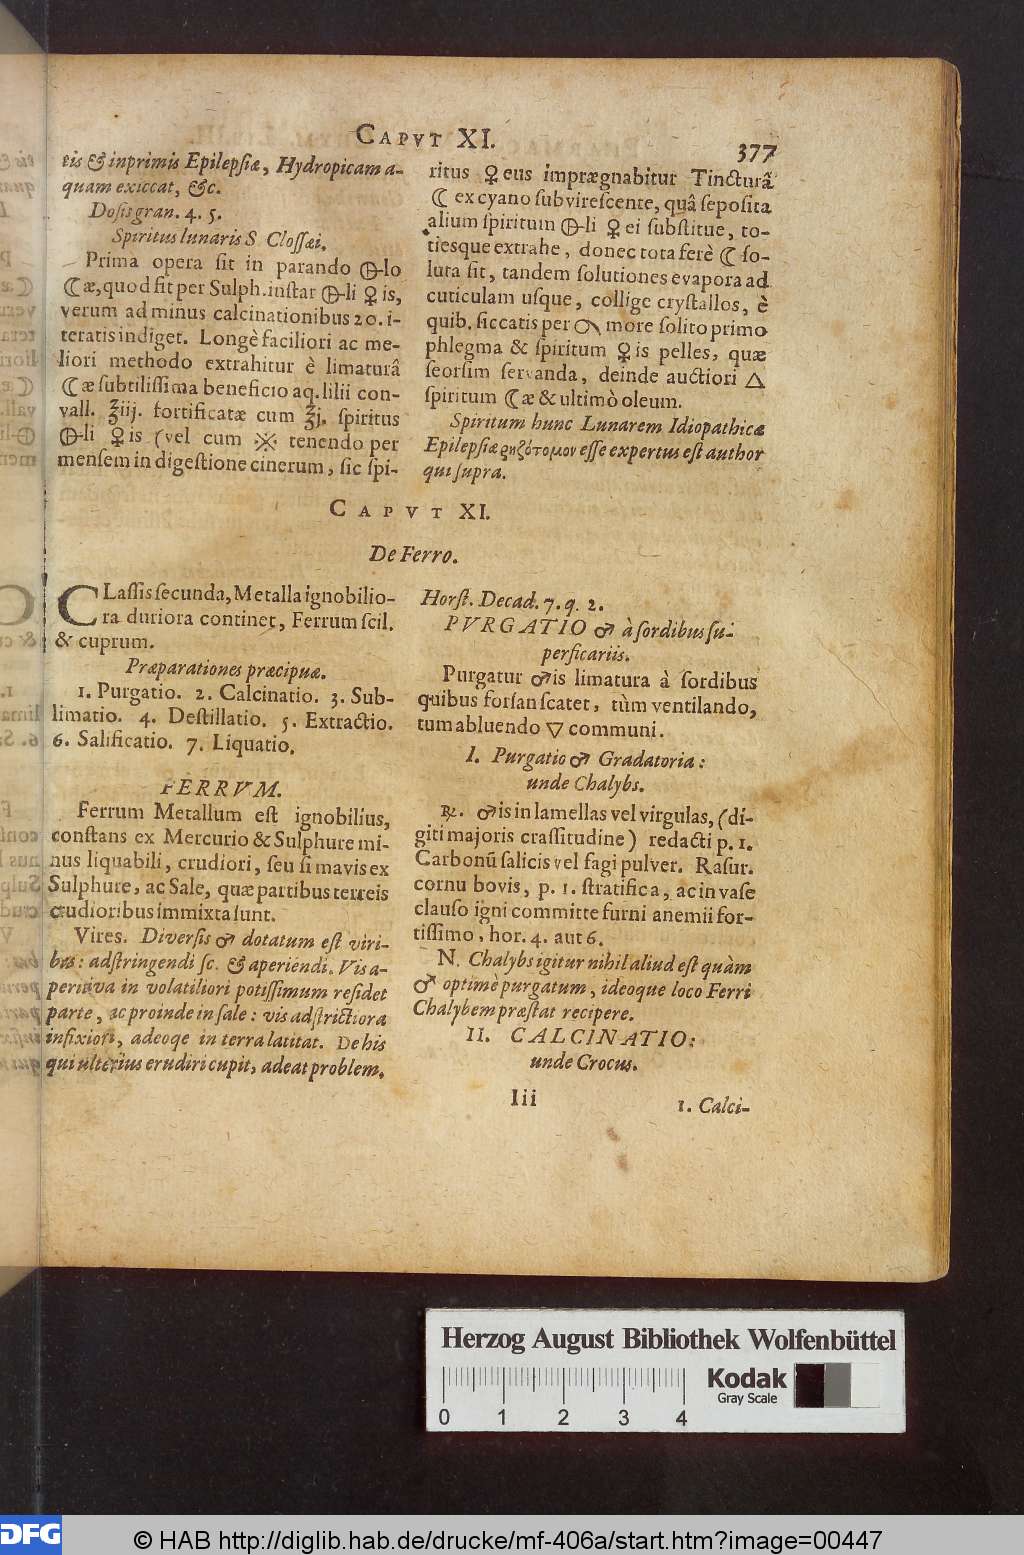 CAPVT XI.
377
tis & inprimis Epilepsiæ, Hydropicam a-
quam exiccat, &c.
Dosis gran. 4. 5.
Spiritus lunaris S Clossæi.
Prima opera sit in parando 🜕-lo
☾æ, quod fit per Sulph. instar 🜕-li ♀is,
verum ad minus calcinationibus 20. i-
teratis indiget. Longè faciliori ac me-
liori methodo extrahitur è limaturâ
☾æ subtilissima beneficio aq. lilii con-
vall. ℥iij. fortificatæ cum ℥j. spiritus
🜕-li ♀is (vel cum ※ tenendo per
mensem in digestione cinerum, sic spi-
ritus ♀eus imprægnabitur Tincturâ
☾ ex cyano subvirescente, quâ seposita
alium spiritum 🜕-li ♀ei substitue, to-
tiesque extrahe, donec tota ferè ☾ so-
luta sit, tandem solutiones evapora ad
cuticulam usque, collige crystallos, è
quib. siccatis per more solito primo
phlegma & spiritum ♀is pelles, quæ
seorsim servanda, deinde auctiori △
spiritum ☾æ & ultimò oleum.
Spiritum hunc Lunarem Idiopathicæ
Epilepsiæ ῥηζότομον esse expertus est author
qui supra.
CAPVT XI.
De Ferro.
CLassis secunda, Metalla ignobilio-
ra duriora continet, Ferrum scil.
& cuprum.
Præparationes præcipuæ.
1. Purgatio. 2. Calcinatio. 3. Sub-
limatio. 4. Destillatio. 5. Extractio.
6. Salificatio. 7. Liquatio.
FERRVM.
Ferrum Metallum est ignobilius,
constans ex Mercurio & Sulphure mi-
nus liquabili, crudiori, seu si mavis ex
Sulphure, ac Sale, quæ partibus terreis
crudioribus immixta sunt.
Vires. Diversis ♂ dotatum est viri-
bus: adstringendi sc. & aperiendi. Vis a-
peritiva in volatiliori potissimum residet
parte, ac proinde in sale: vis adstrictiora
in fixiori, adeoqe in terra latitat. De his
qui ulteriùs erudiri cupit, adeat problem.
Horst. Decad. 7. q. 2.
PVRGATIO ♂ à sordibus su-
perficariis.
Purgatur ♂is limatura à sordibus
quibus forsan scatet, tùm ventilando,
tum abluendo ▽ communi.
I. Purgatio ♂ Gradatoria:
unde Chalybs.
℞. ♂is in lamellas vel virgulas, (di-
giti majoris crassitudine) redacti p. 1.
Carbonū salicis vel fagi pulver. Rasur.
cornu bovis, p. 1. stratifica, ac in vase
clauso igni committe furni anemii for-
tissimo, hor. 4. aut 6.
N. Chalybs igitur nihil aliud est quàm
♂ optimè purgatum, ideoque loco Ferri
Chalybem præstat recipere.
II. CALCINATIO:
unde Crocus.
Iii
1. Calci-
Herzog August Bibliothek Wolfenbüttel
0 1 2 3 4
Kodak
Gray Scale
DFG
© HAB http://diglib.hab.de/drucke/mf-406a/start.htm?image=00447